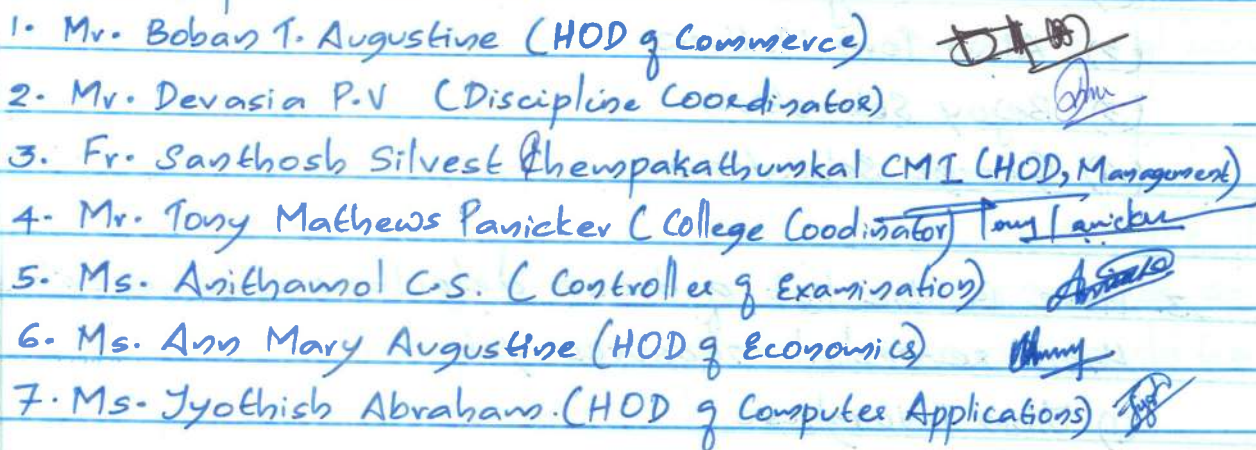 1. Mr. Boban T. Augustine (HOD of Commerce)
2. Mr. Devasia P.V (Discipline Coordinator)
3. Fr. Santhosh Silvest Chempakathumkal CMI (HOD, Management)
4. Mr. Tony Mathews Panicker (College Coodinator) Tony Panicker
5. Ms. Anithamol C.S. (Controller of Examination)
6. Ms. Ann Mary Augustine (HOD of Economics)
7. Ms. Jyothish Abraham. (HOD of Computer Applications)